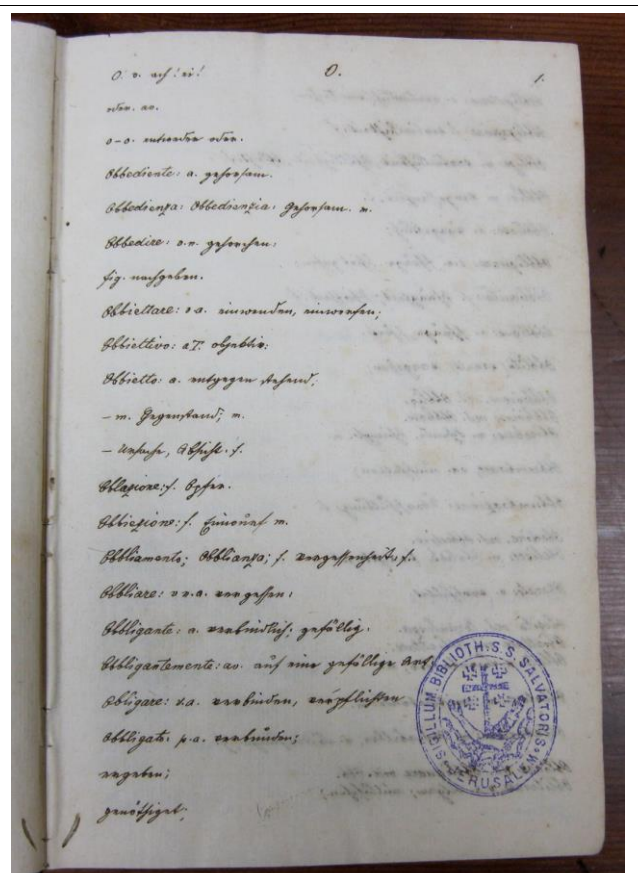 O. 1.
O. v. ach! ei!
oder. av.
o-o. entweder oder.
Obbediente: a. gehorsam.
Obbedienza: Obbedienzia: Gehorsam. m.
Obbedire: v.n. gehorchen:
fig. nachgeben.
Obbiettare: v a. einwenden, einwerfen;
Obbiettivo: a.T. objektiv:
Obbietto: a. entgegen stehend;
– m. Gegenstand; m.
– Ursache, Absicht. f.
Oblazione: f. Opfer.
Obbiezione: f. Einwurf m.
Obbliamento; Obblianza; f. vergessenheit. f.
Obbliare: v.a. vergessen:
Obbligante: a. verbindlich; gefällig.
Obbligantemente: av. auf eine gefällige Art
Obligare: v.a. verbinden, verpflichten
Obbligato p.a. verbunden;
ergeben;
genöthiget;
SIGILLUM BIBLIOTH. S. S. SALVATORIS JERUSALEM